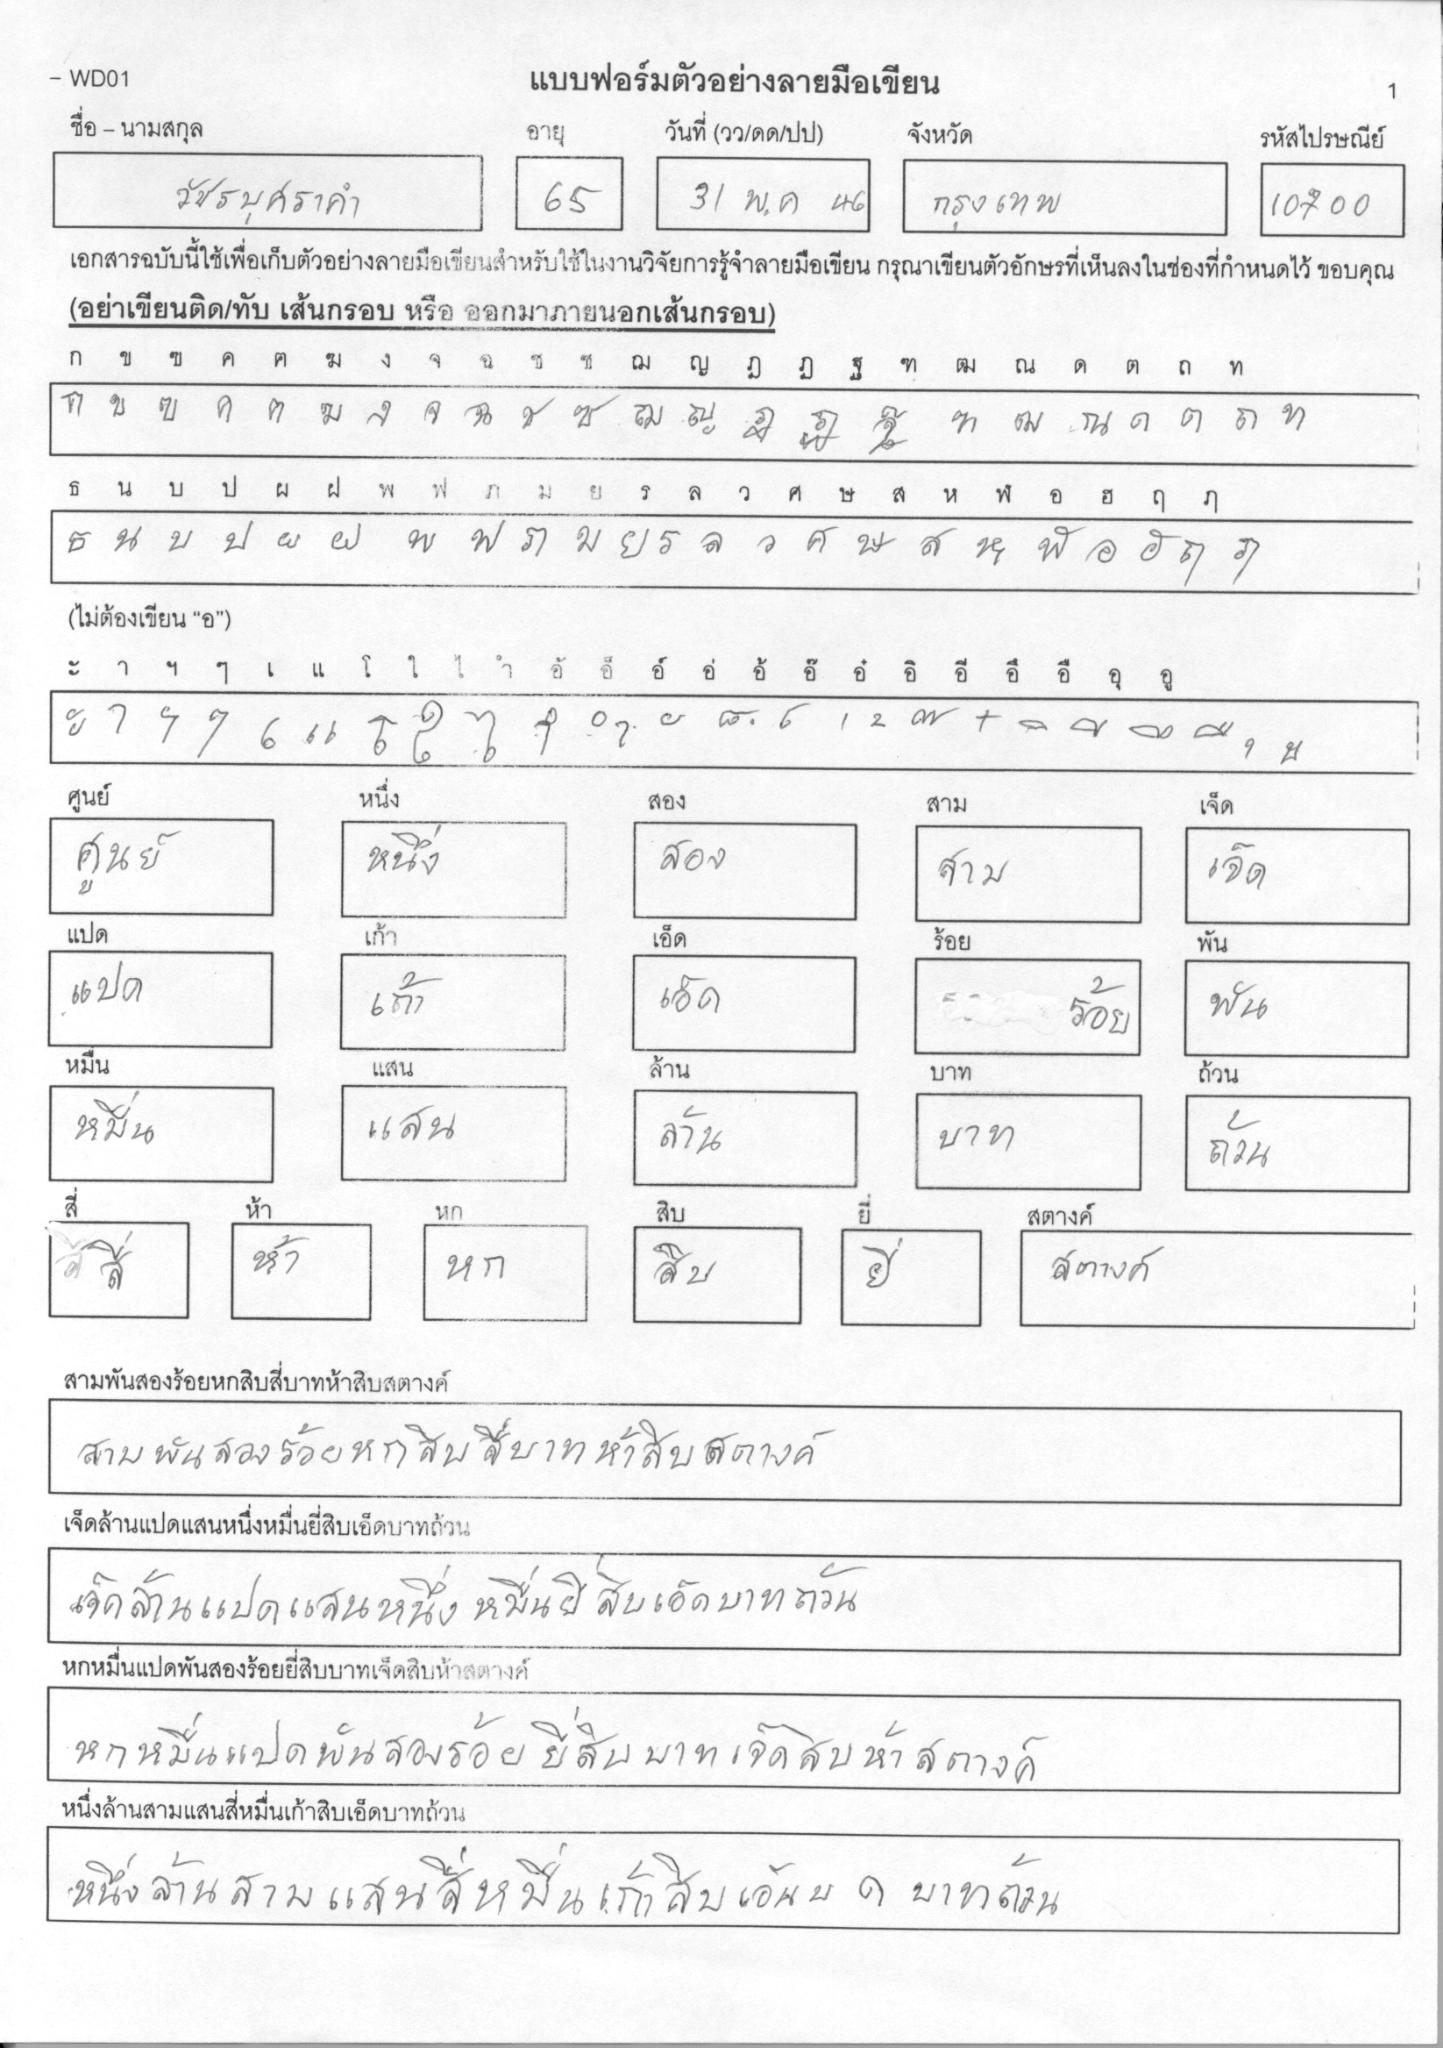 – WD01 แบบฟอร์มตัวอย่างลายมือเขียน 1
ชื่อ – นามสกุล อายุ วันที่ (วว/ดด/ปป) จังหวัด รหัสไปรษณีย์
วัชรบุศราคำ 65 31 พ.ค 46 กรุงเทพ 10700
เอกสารฉบับนี้ใช้เพื่อเก็บตัวอย่างลายมือเขียนสำหรับใช้ในงานวิจัยการรู้จำลายมือเขียน กรุณาเขียนตัวอักษรที่เห็นลงในช่องที่กำหนดไว้ ขอบคุณ
(อย่าเขียนติด/ทับ เส้นกรอบ หรือ ออกมาภายนอกเส้นกรอบ)
ก ข ฃ ค ฅ ฆ ง จ ฉ ช ซ ฌ ญ ฎ ฏ ฐ ฑ ฒ ณ ด ต ถ ท
ก ข ฃ ค ฅ ฆ ง จ ฉ ช ซ ฌ ญ ฎ ฏ ฐ ฑ ฒ ณ ด ต ถ ท
ธ น บ ป ผ ฝ พ ฟ ภ ม ย ร ล ว ศ ษ ส ห ฬ อ ฮ ฤ ฦ
ธ น บ ป ผ ฝ พ ฟ ภ ม ย ร ล ว ศ ษ ส ห ฬ อ ฮ ฤ ฦ
(ไม่ต้องเขียน “อ”)
ะ า ฯ ๆ เ แ โ ใ ไ ำ อั อ็ อ์ อ่ อ้ อ๊ อ๋ อิ อี อึ อื อุ อู
ะ า ฯ ๆ เ แ โ ใ ไ
ศูนย์ หนึ่ง สอง สาม เจ็ด
ศูนย์ หนึ่ง สอง สาม เจ็ด
แปด เก้า เอ็ด ร้อย พัน
แปด เก้า เอ็ด ร้อย พัน
หมื่น แสน ล้าน บาท ถ้วน
หมื่น แสน ล้าน บาท ถ้วน
สี่ ห้า หก สิบ ยี่ สตางค์
สี่ ห้า หก สิบ ยี่ สตางค์
สามพันสองร้อยหกสิบสี่บาทห้าสิบสตางค์
สามพันสองร้อยหกสิบสี่บาทห้าสิบสตางค์
เจ็ดล้านแปดแสนหนึ่งหมื่นยี่สิบเอ็ดบาทถ้วน
เจ็ดล้านแปดแสนหนึ่งหมื่นยี่สิบเอ็ดบาทถ้วน
หกหมื่นแปดพันสองร้อยยี่สิบบาทเจ็ดสิบห้าสตางค์
หกหมื่นแปดพันสองร้อยยี่สิบบาทเจ็ดสิบห้าสตางค์
หนึ่งล้านสามแสนสี่หมื่นเก้าสิบเอ็ดบาทถ้วน
หนึ่งล้านสามแสนสี่หมื่นเก้าสิบ ด บาทถ้วน